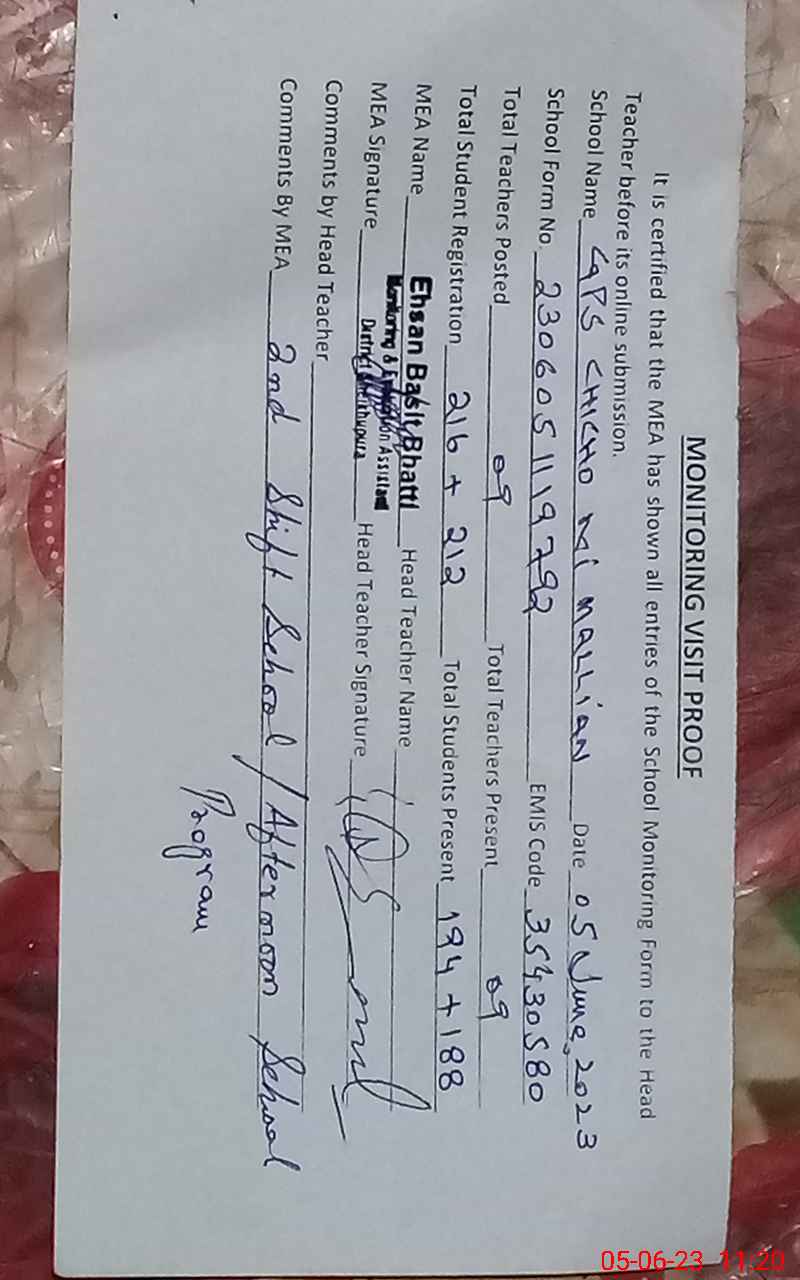 MONITORING VISIT PROOF
It is certified that the MEA has shown all entries of the School Monitoring Form to the Head
Teacher before its online submission.
School Name GPS CHICHO KI MALLIAN Date 05 June, 2023
School Form No. 2306051119792 EMIS Code 35430580
Total Teachers Posted 09 Total Teachers Present 09
Total Student Registration 216 + 212 Total Students Present 194 + 188
MEA Name Ehsan Basit Bhatti Head Teacher Name
Monitoring & Evaluation Assistant
District Sheikhupura
MEA Signature Head Teacher Signature
Comments by Head Teacher
Comments By MEA 2nd Shift School / Afternoon School
Program
05-06-23 11:20